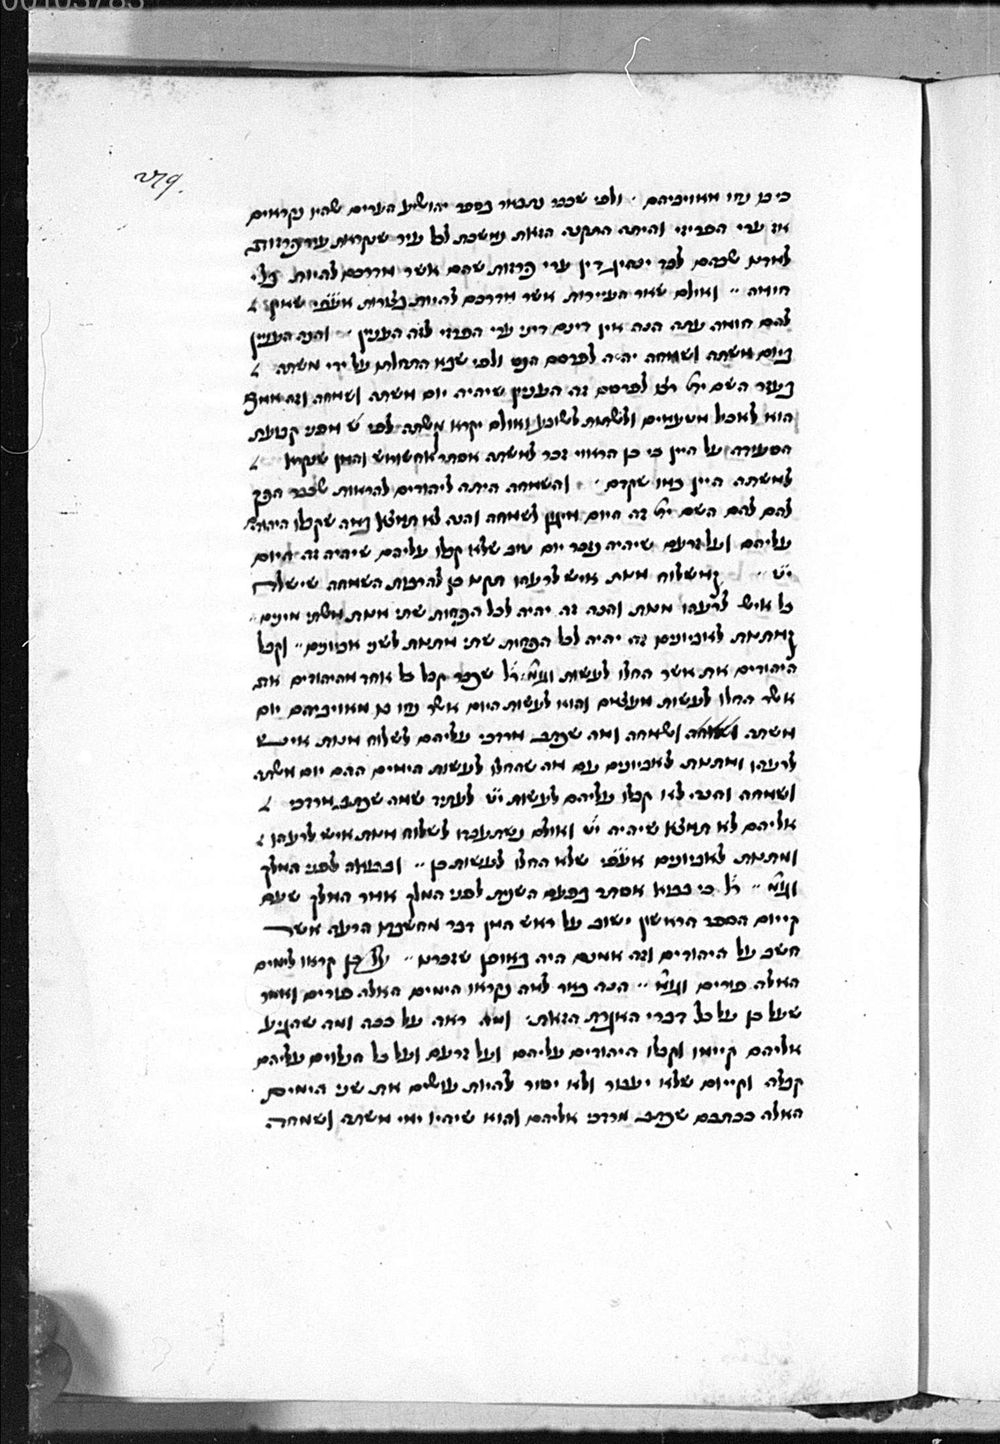 00103783
219.
כי בן נחו מאויביהם · ולפי שכבר נתבאר בספר יהושע הערים שהיו נקראים
אז ערי הפריזי והיתה התקנה הזאת נמשכת לכל עיר שנקראת עיר פרזות
שכבם לבד דין ערי פרזות שהם אשר מדרכם להיות בלי
חומה ·· ואולם שאר העיירות אשר מדרכם להיות בצורות אע״פי שאין
להם חומה עתה הנה אין דינם דיני ערי הפרזי לזה העניין · והנה העניין
ביום משתה ושמחה יהיה לפרסם הנס ולפי שבא ההתחלה על ידי משתה
בעזר השם ית׳ רצו לפרסם זה העניין שיהיה יום משתה ושמחה וזה אמנם
הוא לאכול מטעמים ולשתות לשובע ואולם יקרא משתה לפי ש מפני קביעת
הסעודה על היין כי כן הראוי זכר למשתה אסתר אחשורוש והמן שנקרא
למשתה היין כמו שקדם · והשמחה היתה ליהודים להראות שכבר הפך
להם להם השם ית׳ זה היום מיגון לשמחה והנה לא תמצא במה שקבלו היהוד׳
עליהם ועל זרעם שיהיה נזכר יום טוב שלא קבלו עליהם שיהיה זה היום
י״ט ·· ומשלוח מנות איש לרעהו תקנו כן להרבות השמחה שישלח
כל איש לרעהו מנות והנה זה יהיה לכל הפחות שתי מנות משתי מינים ··
ומתנות לאביונים זה יהיה לכל הפחות שתי מתנות לשני אביונים ·· וקבל
היהודים את אשר החלו לעשות וגומ׳: ר״ל שכבר קבל כל אחד מהיהודים את
אשר החלו לעשות מעצמם והוא לעשות היום אשר נחו בו מאויביהם יום
משתה ושמחה ושמחה ומה שכתב מרדכי עליהם לשלוח מנות איש
לרעהו ומתנות לאביונים עם מה שהחלו לעשות הימים ההם יום משתה
ושמחה והנה לא קבלו עליהם לעשות י״ט לעתיד שמה שכתב מרדכי
אליהם לא תמצא שיהיה י״ט ואולם נשתעבדו לשלוח מנות איש לרעהו
ומתנות לאביונים אע״פי שלא החלו לעשות כן ·· ובבואה לפני המלך
וגומ׳ ·· ר״ל כי בבוא אסתר בפעם השנית לפני המלך אמר המלך שעם
קיום הספר הראשון ישוב על ראש המן דבר מחשבתו הרעה אשר
חשב על היהודים וזה אמנם היה באופן שזכרנו ·· על כן קראו לימים
האלה פורים וגומ׳ ·· הנה באר למה נקראו הימים האלה פורים ואמר
שעל כן על כל דברי האגרת הזאת · ומה ראה על ככה ומה שהגיע
אליהם קיימו וקבלו היהודים עליהם ועל זרעם ועל כל הנלוים עליהם
קבלה וקיום שלא יעבור ולא יסור להיות עושים את שני הימים
האלה ככתבם שכתב מרדכי אליהם והוא שיהיו ימי משתה ושמחה